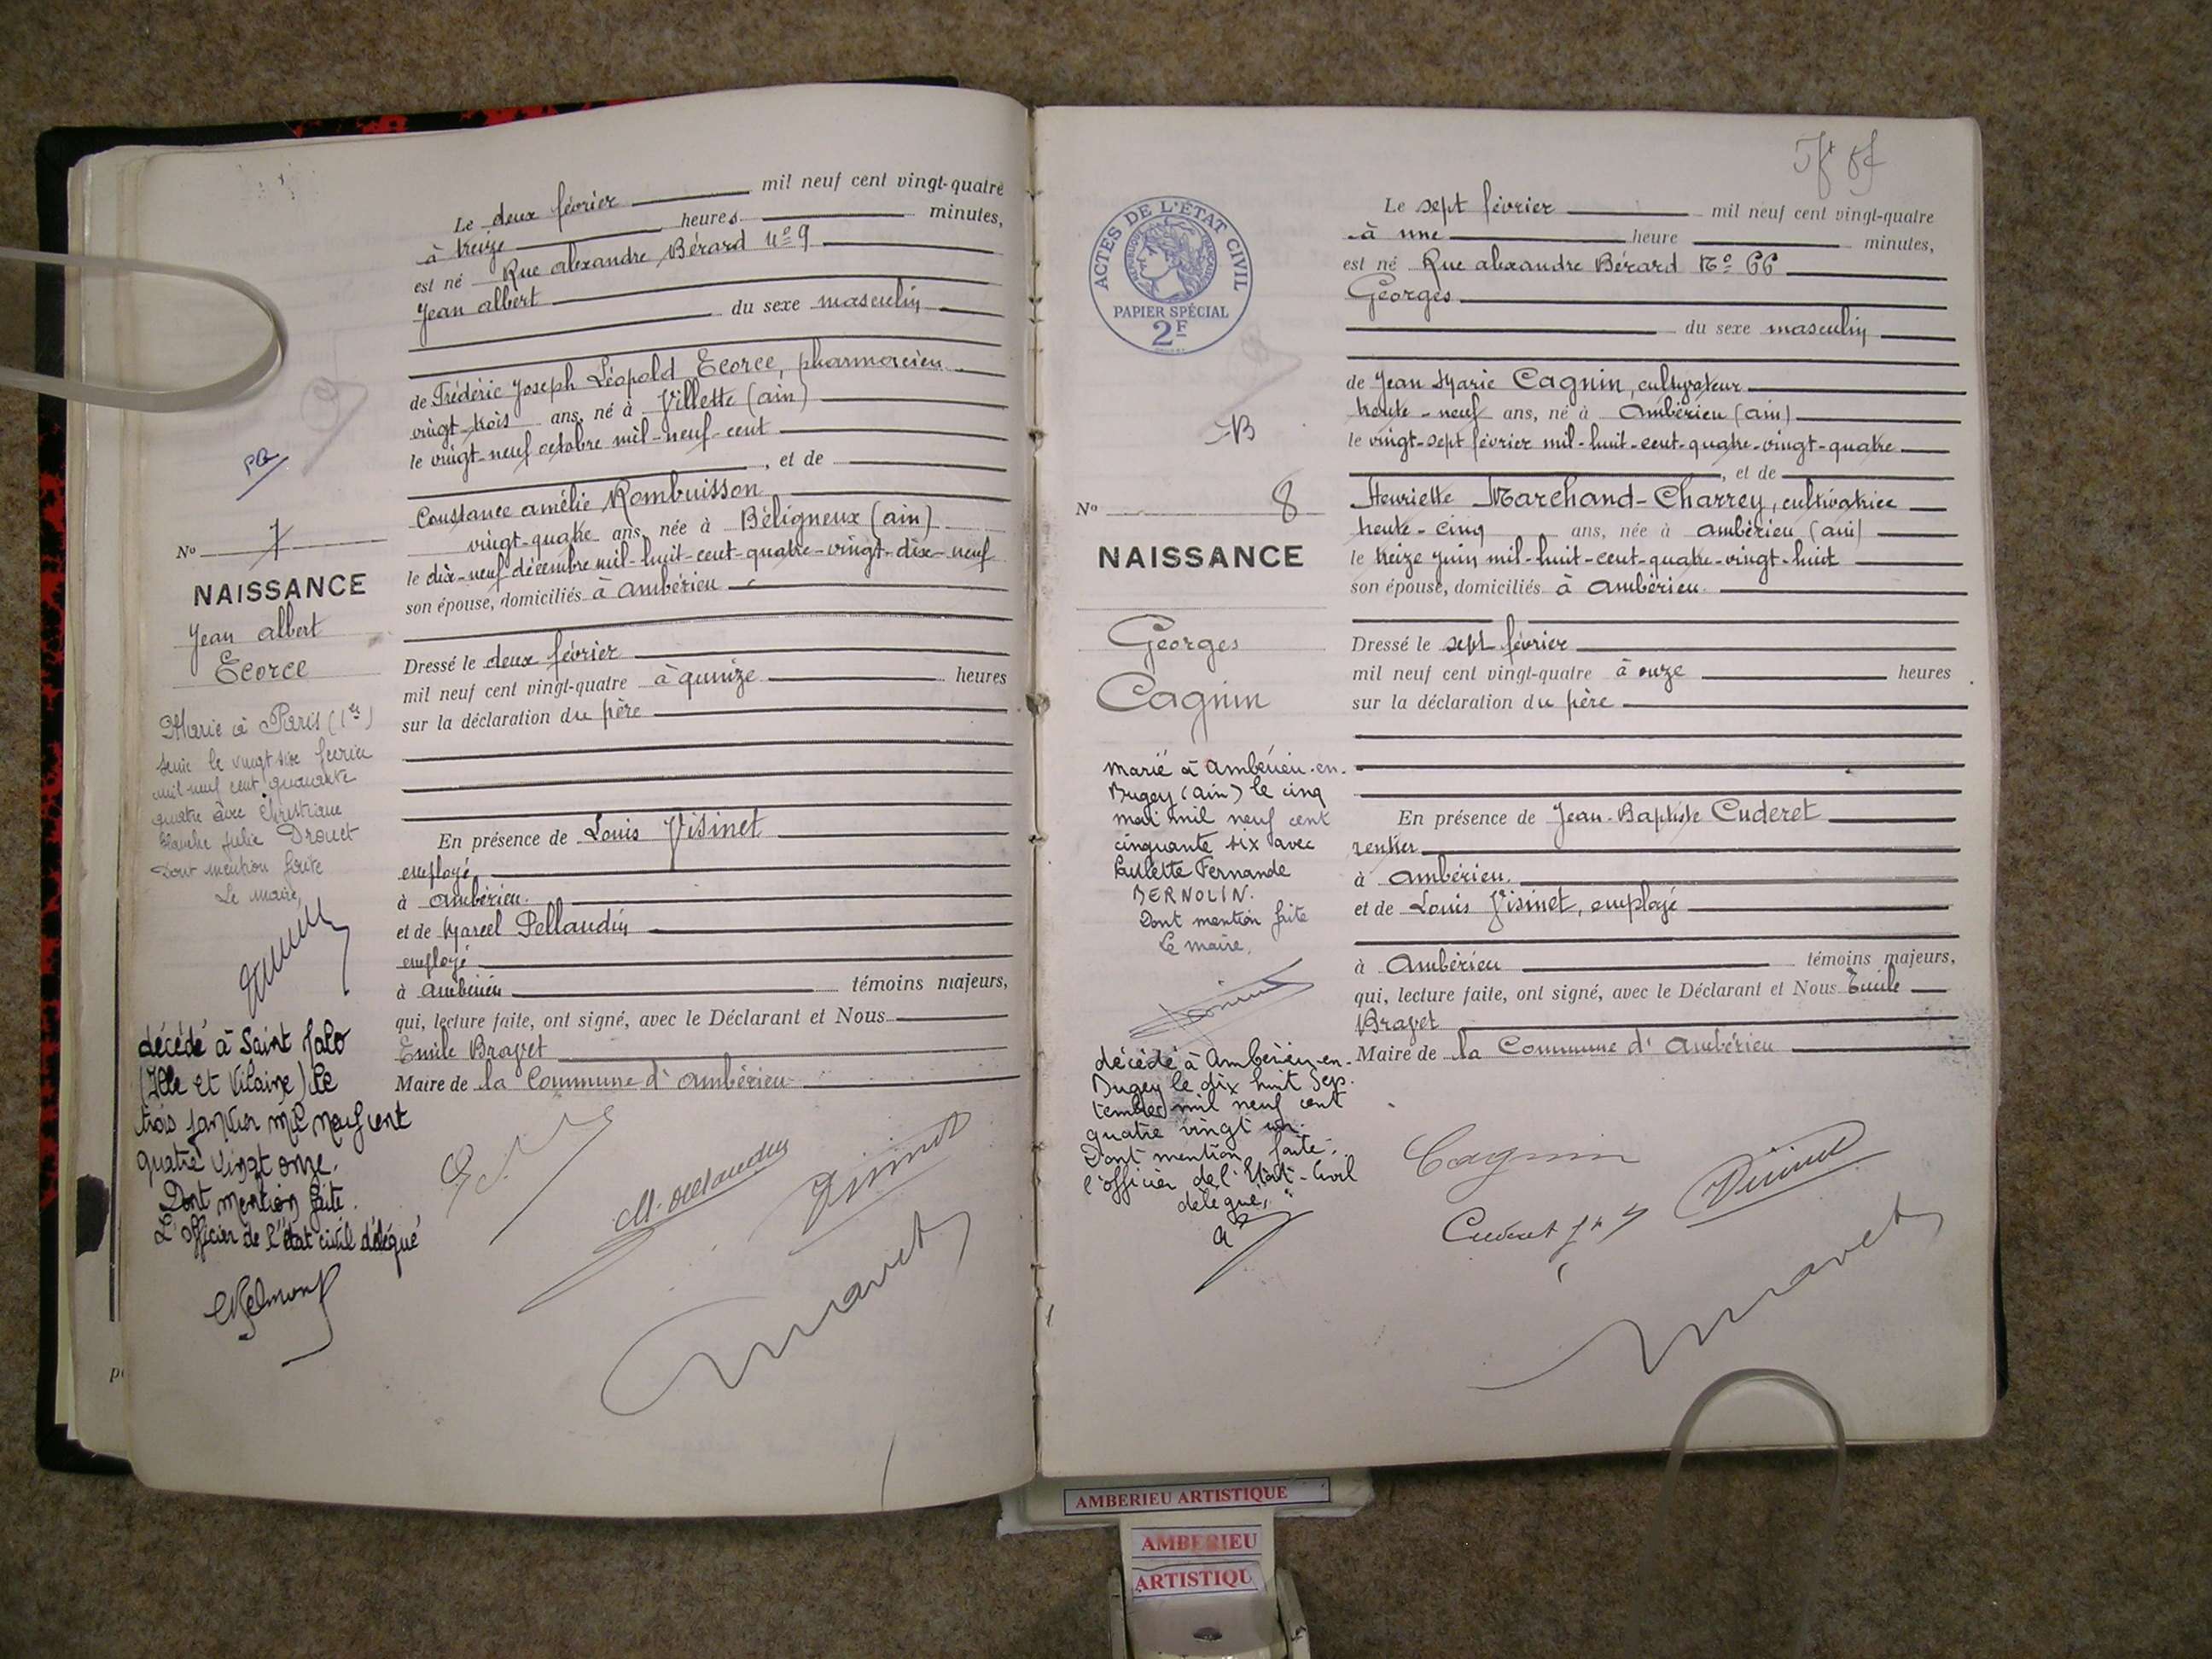 Le deux février mil neuf cent vingt-quatre
à treize heures minutes,
est né Rue alexandre Bérard nº 9
Jean albert
du sexe masculin
de Frédéric Joseph Léopold Ecorce, pharmacien
vingt-trois ans, né à Villette (ain)
le vingt-neuf octobre mil-neuf-cent
, et de
Constance amélie Rombuisson
vingt-quatre ans, née à Béligneux (ain)
le dix-neuf décembre mil-huit-cent-quatre-vingt-dix-neuf
son épouse, domiciliés à ambérieu
Dressé le deux février
mil neuf cent vingt-quatre à quinze heures
sur la déclaration du père
En présence de Louis Visinet
employé
à ambérieu
et de Marcel Pellaudin
employé
à ambérieu témoins majeurs,
qui, lecture faite, ont signé, avec le Déclarant et Nous
Emile Bravet
Maire de la Commune d'ambérieu
Nº 7
NAISSANCE
Jean albert
Ecorce
Marié à Paris (1er)
le vingt six février
mil neuf cent quarante
quatre avec Christiane
Blanche Julie Drouet
Dont mention faite
Le maire,
décédé à Saint Malo
(Ille et Vilaine) le
trois janvier mil neuf cent
quatre vingt onze.
Dont mention faite.
L'officier de l'état civil délégué
ACTES DE L'ÉTAT CIVIL
RÉPUBLIQUE FRANÇAISE
PAPIER SPÉCIAL
2F
Nº 8
NAISSANCE
Georges
Cagnin
marié à Ambérieu-en-
Bugey (ain) le cinq
mai mil neuf cent
cinquante six avec
Paulette Fernande
BERNOLIN.
Dont mention faite
Le maire,
décédé à Ambérieu-en-
Bugey le dix huit Sep-
tembre mil neuf cent
quatre vingt un.
Dont mention faite.
l'officier de l'Etat-Civil
délégué,
Le sept février mil neuf cent vingt-quatre
à une heure minutes,
est né Rue alexandre Bérard Nº 66
Georges
du sexe masculin
de Jean Marie Cagnin, cultivateur
trente-neuf ans, né à Ambérieu (ain)
le vingt-sept février mil-huit-cent-quatre-vingt-quatre
, et de
Henriette Marchand-Charrey, cultivatrice
trente-cinq ans, née à ambérieu (ain)
le treize juin mil-huit-cent-quatre-vingt-huit
son épouse, domiciliés à ambérieu
Dressé le sept février
mil neuf cent vingt-quatre à onze heures
sur la déclaration du père
En présence de Jean-Baptiste Cuderet
rentier
à ambérieu
et de Louis Visinet, employé
à Ambérieu témoins majeurs,
qui, lecture faite, ont signé, avec le Déclarant et Nous Emile
Bravet
Maire de la Commune d'ambérieu
Cagnin
AMBERIEU ARTISTIQUE
AMBERIEU
ARTISTIQU